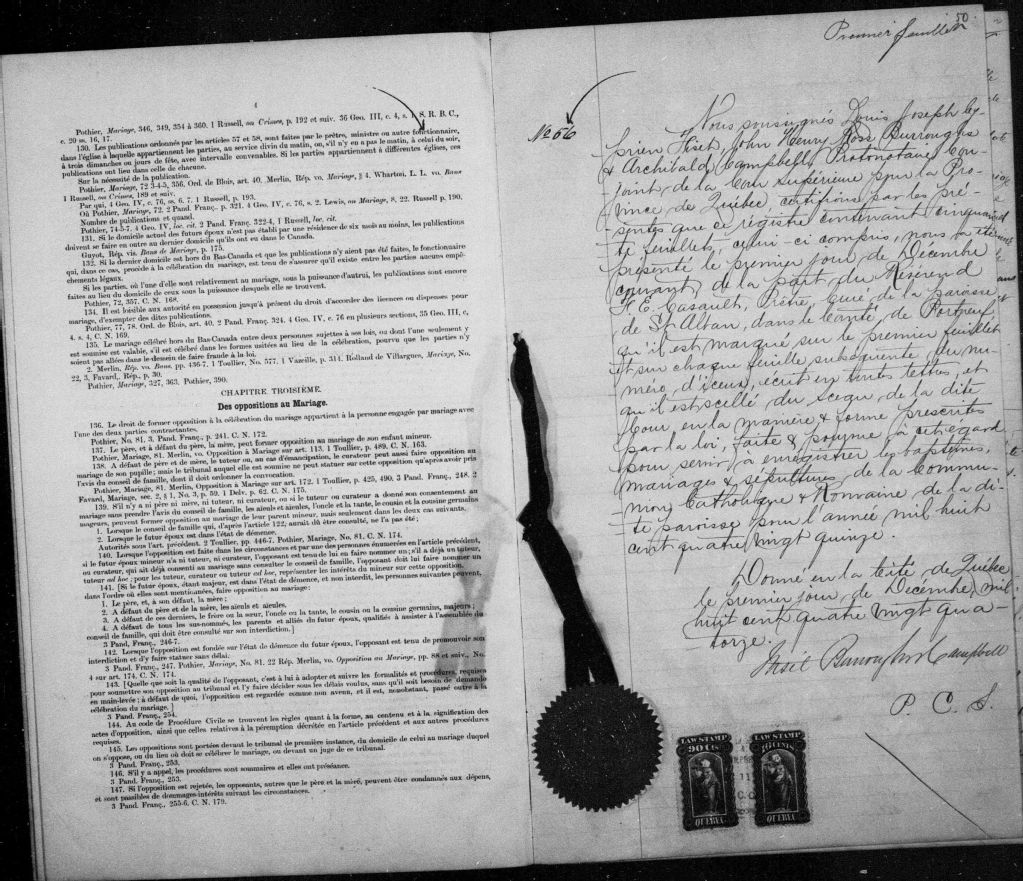 4
Pothier, Mariage, 346, 349, 354 à 360. 1 Russell, on Crimes, p. 192 et suiv. 36 Geo. III, c. 4, s. 1, S. R. B. C.,
c. 20 ss. 16, 17.
130. Les publications ordonnées par les articles 57 et 58, sont faites par le prêtre, ministre ou autre fonctionnaire,
dans l'église à laquelle appartiennent les parties, au service divin du matin, ou, s'il n'y en a pas le matin, à celui du soir,
à trois dimanches ou jours de fête, avec intervalle convenables. Si les parties appartiennent à différentes églises, ces
publications ont lieu dans celle de chacune.
Sur la nécessité de la publication.
Pothier, Mariage, 72 3-4-5, 356, Ord. de Blois, art. 40. Merlin, Rép. vo. Mariage, § 4. Wharton, L. L. vo. Bans
1 Russell, on Crimes, 189 et suiv.
Par qui, 4 Geo. IV, c. 76, ss. 6, 7. 1 Russell, p. 193.
Où Pothier, Mariage, 72. 2 Pand. Franç., p. 321. 4 Geo. IV, c. 76, s. 2. Lewis, on Mariage, s. 22. Russell p. 190.
Nombre de publications et quand.
Pothier, 74-5-7. 4 Geo. IV, loc. cit. 2 Pand. Franç. 322-4, 1 Russell, loc. cit.
131. Si le domicile actuel des futurs époux n'est pas établi par une résidence de six mois au moins, les publications
doivent se faire en outre au dernier domicile qu'ils ont eu dans le Canada.
Guyot, Rép. vis. Bans de Mariage, p. 175.
132. Si le dernier domicile est hors du Bas-Canada et que les publications n'y aient pas été faites, le fonctionnaire
qui, dans ce cas, procède à la célébration du mariage, est tenu de s'assurer qu'il existe entre les parties aucuns empê-
chements légaux.
Si les parties, où l'une d'elles sont relativement au mariage, sous la puissance d'autrui, les publications sont encore
faites au lieu du domicile de ceux sous la puissance desquels elle se trouvent.
Pothier, 72, 357. C. N. 168.
134. Il est loisible aux autorités en possession jusqu'à présent du droit d'accorder des licences ou dispenses pour
mariage, d'exempter des dites publications.
Pothier, 77, 78. Ord. de Blois, art. 40, 2 Pand. Franç. 324. 4 Geo. IV, c. 76 en plusieurs sections, 35 Geo. III, c,
4. s. 4, C. N. 169.
135. Le mariage célébré hors du Bas-Canada entre deux personnes sujettes à ses lois, ou dont l'une seulement y
est soumise est valable, s'il est célébré dans les formes usitées au lieu de la célébration, pourvu que les parties n'y
soient pas allées dans le dessein de faire fraude à la loi.
2. Merlin, Rép. vo. Bans. pp. 436-7. 1 Toullier, No. 577. 1 Vazeille, p. 314. Rolland de Villargues, Mariage, No.
22, 3, Favard, Rép., p. 30.
Pothier, Mariage, 327, 363, Pothier, 390.
CHAPITRE TROISIÈME.
Des oppositions au Mariage.
136. Le droit de former opposition à la célébration du mariage appartient à la personne engagée par mariage avec
l'une des deux parties contractantes.
Pothier, No. 81. 3. Pand. Franç., p. 241. C. N. 172.
137. Le père, et à défaut du père, la mère, peut former opposition au mariage de son enfant mineur.
Pothier, Mariage, 81. Merlin, vo. Opposition à Mariage sur art. 113. 1 Toullier, p. 489. C. N. 163.
138. A défaut de père et de mère, le tuteur ou, au cas d'émancipation, le curateur peut aussi faire opposition au
mariage de son pupille; mais le tribunal auquel elle est soumise ne peut statuer sur cette opposition qu'après avoir pris
l'avis du conseil de famille, dont il doit ordonner la convocation.
Pothier, Mariage, 81. Merlin, Opposition à Mariage sur art. p. 172. 1 Toullier, p. 425, 490. 3 Pand. Franç., 248. 2
Favard, Mariage, sec. 2, § 1, No. 3, p. 59. 1 Delv. p. 62. C. N. 175.
139. S'il n'y a ni père ni mère, ni tuteur, ni curateur, ou si le tuteur ou curateur a donné son consentement au
mariage sans prendre l'avis du conseil de famille, les aïeuls et aïeules, l'oncle et la tante, le cousin et la cousine germains
majeurs, peuvent former opposition au mariage de leur parent mineur, mais seulement dans les deux cas suivants.
1. Lorsque le conseil de famille qui, d'après l'article 122, aurait dû être consulté, ne l'a pas été;
2. Lorsque le futur époux est dans l'état de démence.
Autorités sous l'art. précédent. 2 Toullier, pp. 446-7. Pothier, Mariage, No. 81. C. N. 174.
140. Lorsque l'opposition est faite dans les circonstances et par une des personnes énumérées en l'article précédent,
si le futur époux mineur n'a ni tuteur, ni curateur, l'opposant est tenu de lui en faire nommer un; s'il a déjà un tuteur,
ou curateur, qui ait déjà consenti au mariage sans consulter le conseil de famille, l'opposant doit lui faire nommer un
tuteur ad hoc; pour les tuteur, curateur ou tuteur ad hoc, représenter les intérêts du mineur sur cette opposition.
141. [Si le futur époux, étant majeur, est dans l'état de démence, et non interdit, les personnes suivantes peuvent,
dans l'ordre où elles sont mentionnées, faire opposition au mariage:
1. Le père, et, à son défaut, la mère;
2. A défaut du père et de la mère, les aïeuls et aïeules.
3. A défaut de ces derniers, le frère ou la sœur, l'oncle ou la tante, le cousin ou la cousine germains, majeurs;
4. A défaut de tous les sus-nommés, les parents et alliés du futur époux, qualifiés à assister à l'assemblée du
conseil de famille, qui doit être consulté sur son interdiction.]
3 Pand. Franç., 246-7.
142. Lorsque l'opposition est fondée sur l'état de démence du futur époux, l'opposant est tenu de promouvoir son
interdiction et d'y faire statuer sans délai.
3 Pand. Franç., 247. Pothier, Mariage, No. 81. 22 Rép. Merlin, vo. Opposition au Mariage, pp. 88 et suiv., No.
4 sur art. 174. C. N. 174.
143. [Quelle que soit la qualité de l'opposant, c'est à lui à adopter et suivre les formalités et procédures requises
pour soumettre son opposition au tribunal et l'y faire décider sous les délais voulus, sans qu'il soit besoin de demande
en main-levée; à défaut de quoi, l'opposition est regardée comme non avenu, et il est, nonobstant, passé outre à la
célébration du mariage.]
3 Pand. Franç., 254.
144. Au code de Procédure Civile se trouvent les règles quant à la forme, au contenu et à la signification des
actes d'opposition, ainsi que celles relatives à la péremption décrétée en l'article précédent et aux autres procédures
requises.
145. Les oppositions sont portées devant le tribunal de première instance, du domicile de celui au mariage duquel
on s'oppose, ou du lieu où doit se célébrer le mariage, ou devant un juge de ce tribunal.
3 Pand. Franç., 253.
146. S'il y a appel, les procédures sont sommaires et elles ont préséance.
3 Pand. Franç., 253.
147. Si l'opposition est rejetée, les opposants, autres que le père et la mère, peuvent être condamnés aux dépens,
et sont passibles de dommages-intérêts suivant les circonstances.
3 Pand. Franç., 255-6. C. N. 179.
50
Premier feuillet
No 56
Nous soussignés Louis Joseph Cy-
prien Fiset, John Henry Ross Burroughs
& Archibald Campbell, Protonotaire Con-
joint, de la Cour Supérieure pour la Pro-
vince de Québec, certifions par les pré-
sentes que ce régistre contenant cinquan-
te feuillets, celui-ci compris, nous a été
présenté le premier jour de Décembre
courant, de la part du Révérend
F. E. Casault, Prêtre, curé de la paroisse
de St Alban, dans le Comté, de Portneuf,
qu'il est marqué sur le premier feuillet
et sur chaque feuille subséquente du nu-
méro d'iceux, écrit en toutes lettres, et
qu'il est scellé du sceau de la dite
Cour, en la manière & forme prescrites
par la loi, faite & pourvue à cet égard
pour servir à enregistrer les baptêmes,
mariages & sépultures, de la Commu-
nion Catholique & Romaine de la di-
te paroisse pour l'année mil huit
cent quatre vingt quinze.
Donné en la Cité, de Québec
le premier jour, de Décembre, mil
huit cent quatre vingt qua-
torze.
Fiset Burroughs & Campbell
P. C. S.
LAW STAMP
90 CTS
QUEBEC
LAW STAMP
10 CENTS
QUEBEC